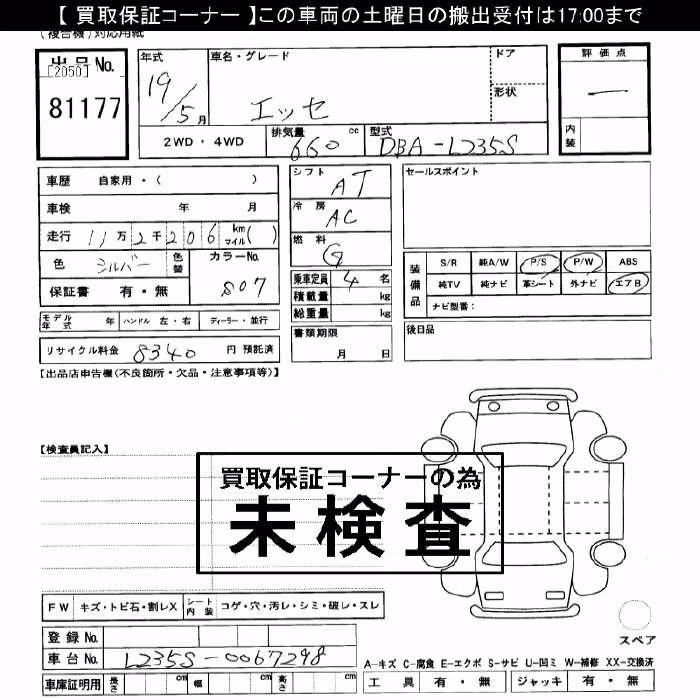 【 買取保証コーナー 】この車両の土曜日の搬出受付は17:00まで
(複合機)対応用紙
出品No.
[2050]
81177
年式
19/5月
車名・グレード
エッセ
ドア
形状
評価点
―
内装
2WD・4WD
排気量
660 cc
型式
DBA-L235S
車歴 自家用・( )
車検 年 月
走行 11万2千206 km マイル( )
色 シルバー 色替
カラーNo. S07
保証書 有・無
モデル年式 年 ハンドル 左・右 ディーラー・並行
リサイクル料金 8340 円 預託済
シフト AT
冷房 AC
燃料 G
乗車定員 4 名
積載量 kg
総重量 kg
書類期限
月 日
セールスポイント
装備品
S/R 純A/W P/S P/W ABS
純TV 純ナビ 革シート 外ナビ エアB
ナビ型番:
後日品
【出品店申告欄(不良箇所・欠品・注意事項等)】
【検査員記入】
買取保証コーナーの為
未検査
FW キズ・トビ石・割レX シート内装 コゲ・穴・汚レ・シミ・破レ・スレ
登録No.
車台No. L235S-0067298
車庫証明用 長さ cm 幅 cm 高さ cm
スペア
A-キズ C-腐食 E-エクボ S-サビ U-凹ミ W-補修 XX-交換済
工具 有・無 ジャッキ 有・無